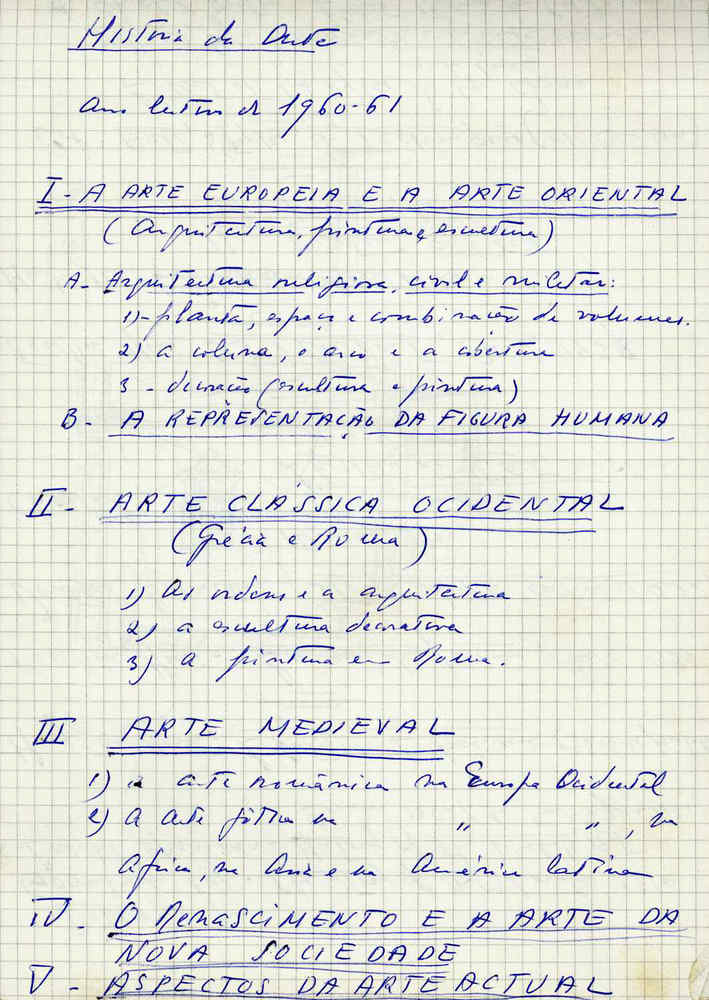 História da Arte
Ano lectivo de 1960-61
I - A ARTE EUROPEIA E A ARTE ORIENTAL
(Arquitectura, pintura e escultura)
A - Arquitectura religiosa, civil e militar:
1) - planta, espaço e combinação de volumes.
2) a coluna, o arco e a abertura
3 - decoração (escultura e pintura)
B - A REPRESENTAÇÃO DA FIGURA HUMANA
II - ARTE CLÁSSICA OCIDENTAL
(Grécia e Roma)
1) As ordens e a arquitectura
2) a escultura decorativa
3) a pintura em Roma.
III ARTE MEDIEVAL
1) a arte românica na Europa Ocidental
2) A arte gótica na " " , na
Africa, na Ásia e na América latina
IV - O RENASCIMENTO E A ARTE DA
NOVA SOCIEDADE
V - ASPECTOS DA ARTE ACTUAL